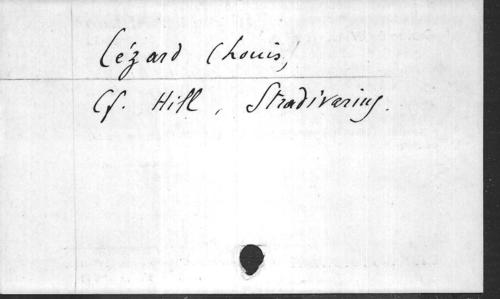 Lézard (Louis)
Cf. Hill, Stradivarius.